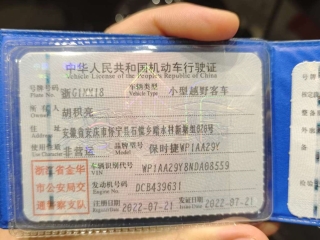 中华人民共和国机动车行驶证
Vehicle License of the People's Republic of China
号牌号码
Plate No.
浙G1KM18
车辆类型
Vehicle Type
小型越野客车
所有人
Owner
胡积亮
安徽省安庆市怀宁县石镜乡
非营运
品牌型号
Model
保时捷WP1AA29Y
浙江省金华
市公安局交
通警察支队
车辆识别代号
VIN
WP1AA29Y8NDA08559
发动机号码
Engine No.
DCB439631
注册日期
2022-07-21
发证日期
Issue Date
2022-07-21